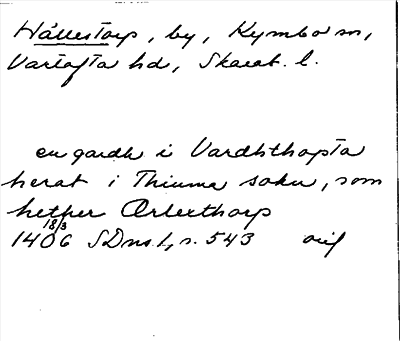 Hällestorp, by, Kymbo sn,
Vartofta hd, Skarab. l.
en gardh i Vardhthopta
herat i Thiuma sokn, som
hether Ørlexthorp
18/3
1406 SDns 1, s. 543 orig